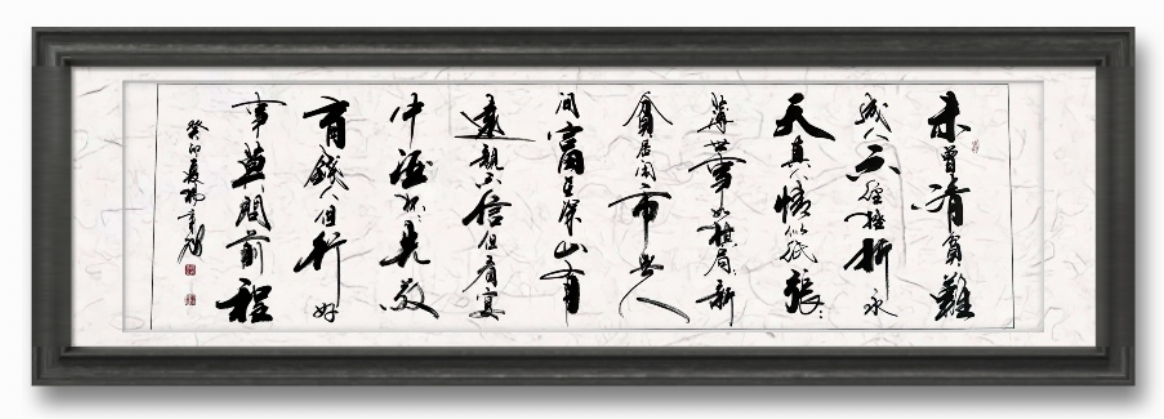 未曾清貧難
成人不經挫折永
天真人情似紙張々
薄世事如棋局々新
貧居鬧市無人
問富在深山有
遠親不信但看宴
中酒杯々先敬
有錢人但行好
事莫問前程
癸卯夏楊